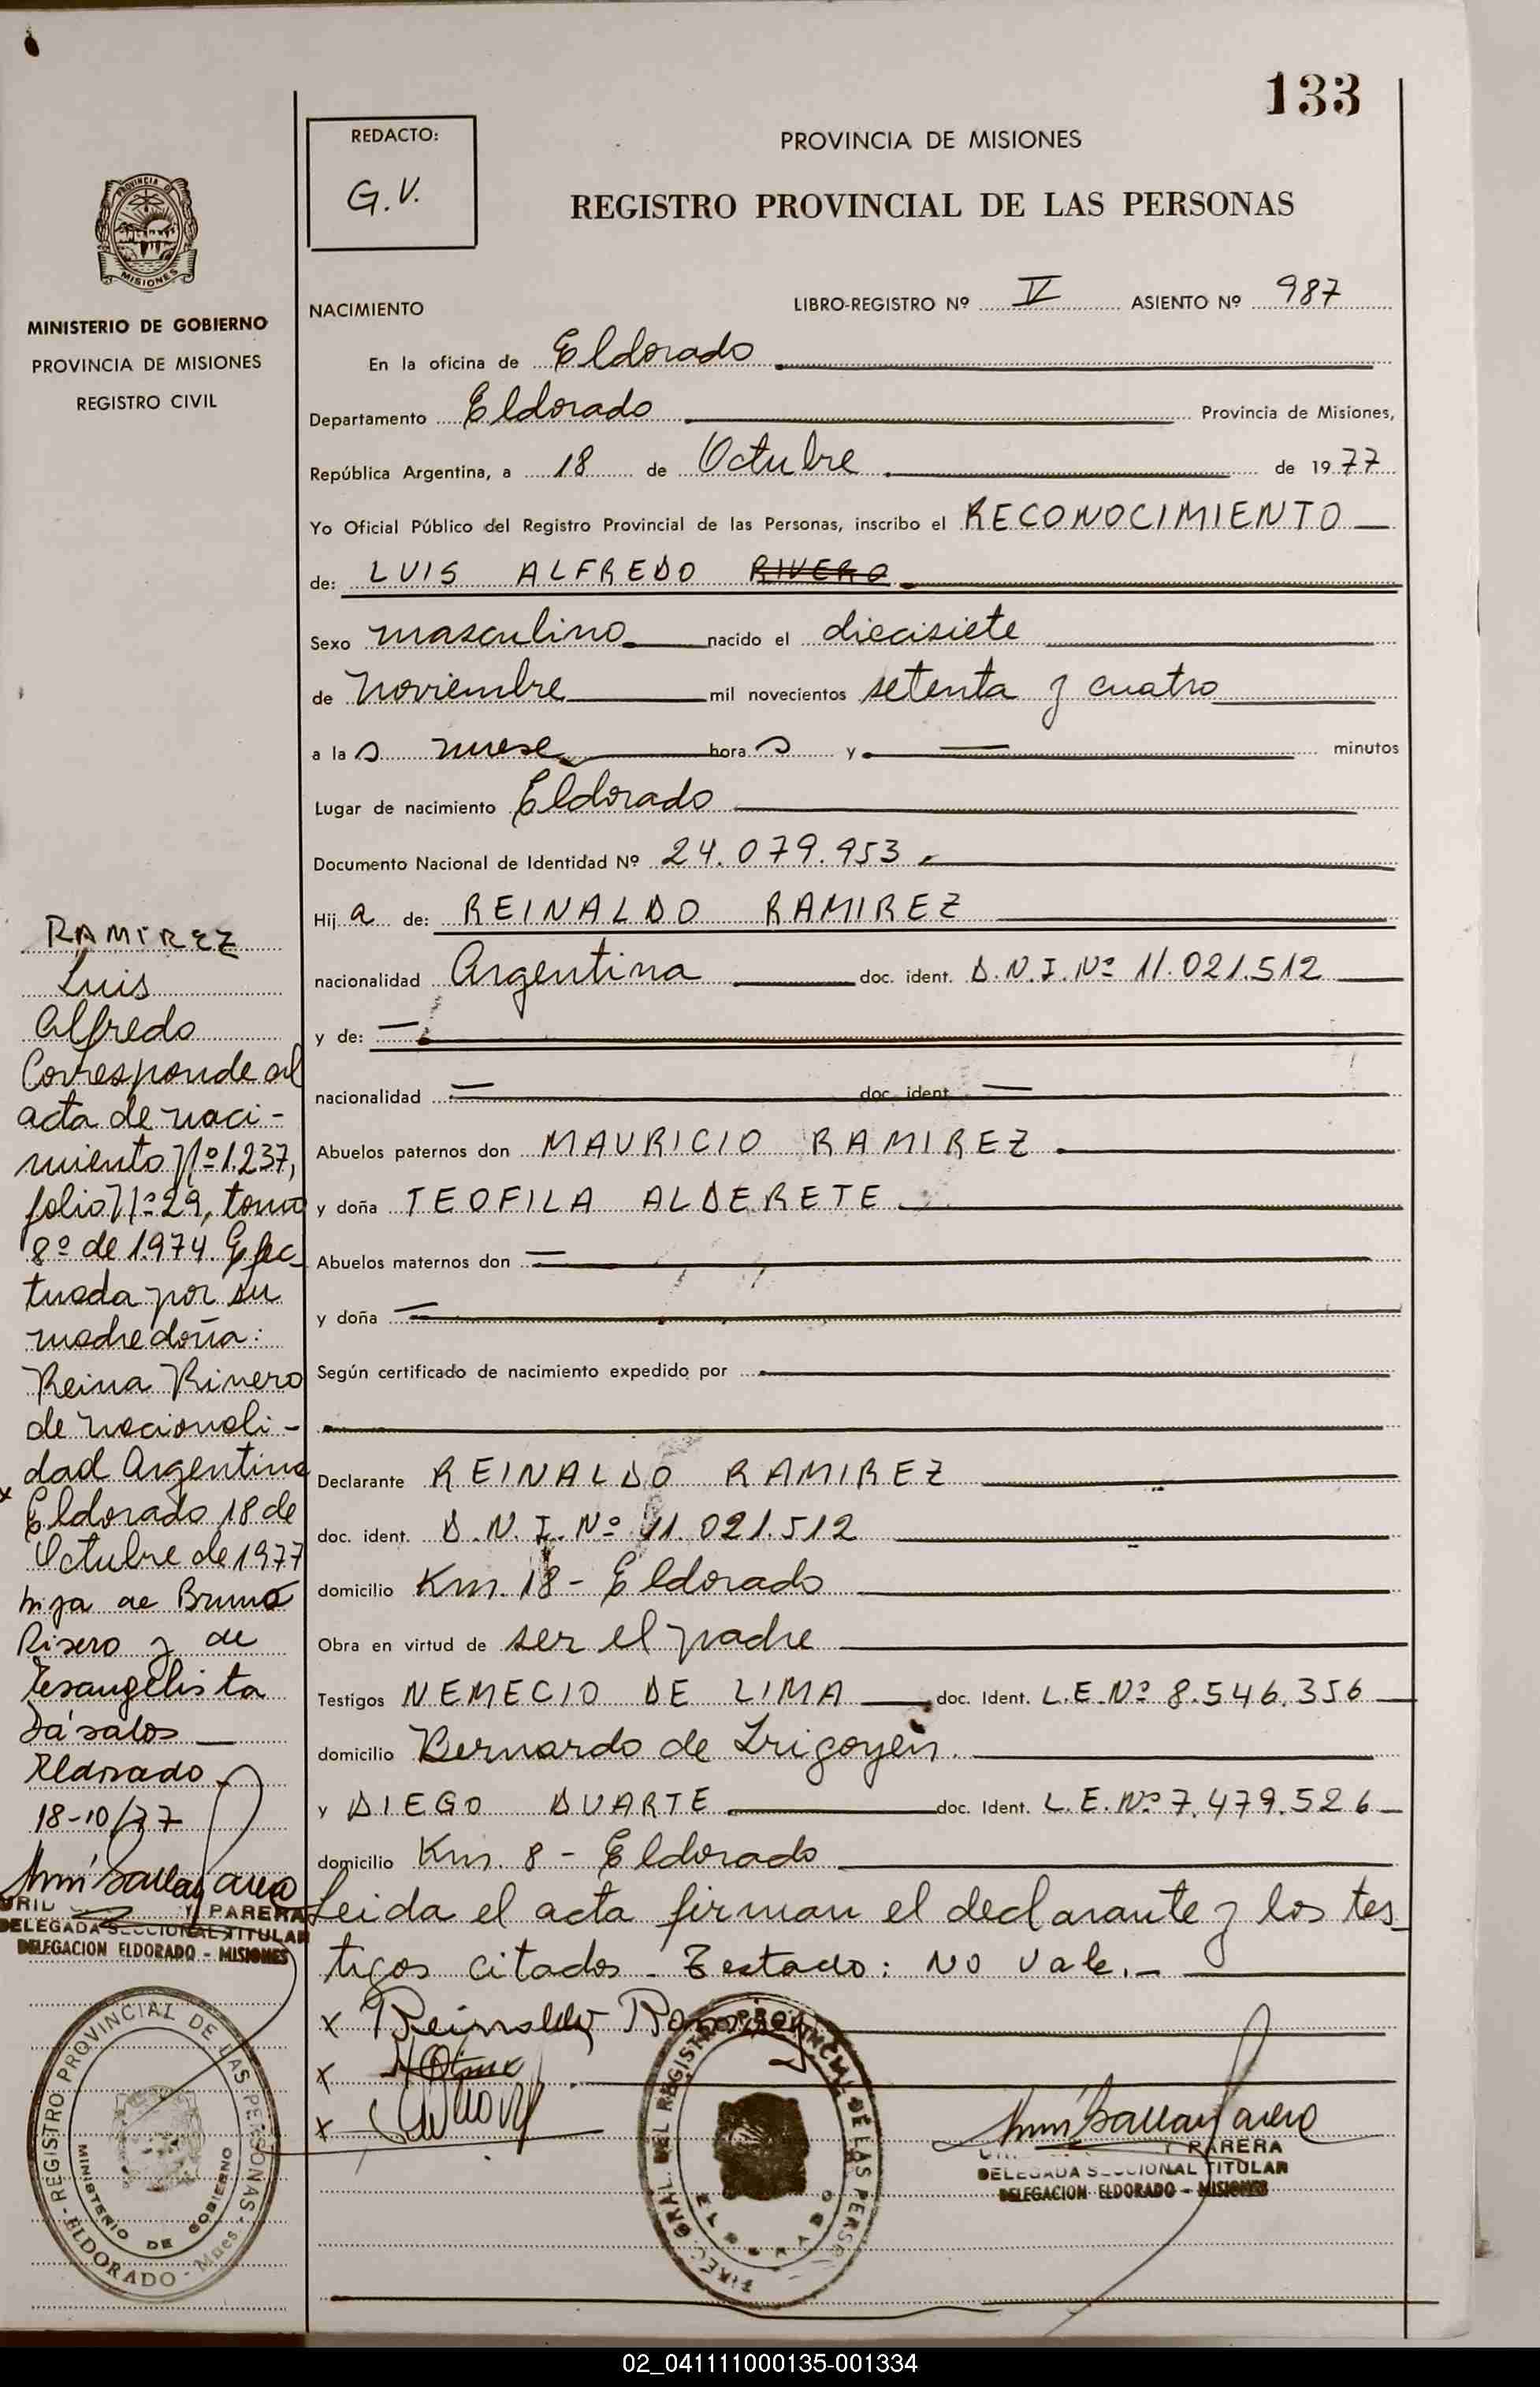 133
REDACTO:
G.V.
PROVINCIA DE MISIONES
REGISTRO PROVINCIAL DE LAS PERSONAS
PROVINCIA DE
MISIONES
MINISTERIO DE GOBIERNO
PROVINCIA DE MISIONES
REGISTRO CIVIL
NACIMIENTO LIBRO-REGISTRO Nº V ASIENTO Nº 987
En la oficina de Eldorado
Departamento Eldorado Provincia de Misiones,
República Argentina, a 18 de Octubre de 1977
Yo Oficial Público del Registro Provincial de las Personas, inscribo el RECONOCIMIENTO
de: LUIS ALFREDO RIVERO
Sexo masculino nacido el diecisiete
de noviembre mil novecientos setenta y cuatro
a las nueve horas y — minutos
Lugar de nacimiento Eldorado
Documento Nacional de Identidad Nº 24.079.953.-
Hija de: REINALDO RAMIREZ
nacionalidad Argentina doc. ident. D.N.I. Nº 11.021.512
y de: —
nacionalidad — doc. ident. —
Abuelos paternos don MAURICIO RAMIREZ
y doña TEOFILA ALDERETE
Abuelos maternos don —
y doña —
Según certificado de nacimiento expedido por
Declarante REINALDO RAMIREZ
doc. ident. D.N.I. Nº 11.021.512
domicilio Km. 18 - Eldorado
Obra en virtud de ser el padre
Testigos NEMECIO DE LIMA doc. Ident. L.E. Nº 8.546.356
domicilio Bernardo de Irigoyen.
y DIEGO DUARTE doc. Ident. L.E. Nº 7.479.526
domicilio Km. 8 - Eldorado
Leida el acta firman el declarante y los tes-
tigos citados - Testado: NO vale.-
x Reinaldo Ramirez
x
x
Y PARERA
DELEGADA SECCIONAL TITULAR
DELEGACION ELDORADO - MISIONES
DIREC. GRAL. DEL REGISTRO PROVINCIAL DE LAS PERSONAS
ELDORADO
RAMIREZ
Luis
Alfredo
Corresponde al
acta de naci-
miento Nº 1.237,
folio Nº 29, tomo
8º de 1974. Efec-
tuada por su
madre doña:
Reina Rivero
de nacionali-
dad Argentina
x
Eldorado 18 de
Octubre de 1977
hija de Bruno
Rivero y de
Evangelista
Dávalos
Eldorado
18-10/77
Y PARERA
DELEGADA SECCIONAL TITULAR
DELEGACION ELDORADO - MISIONES
REGISTRO PROVINCIAL DE LAS PERSONAS
MINISTERIO DE GOBIERNO
ELDORADO - Mnes.
02_041111000135-001334